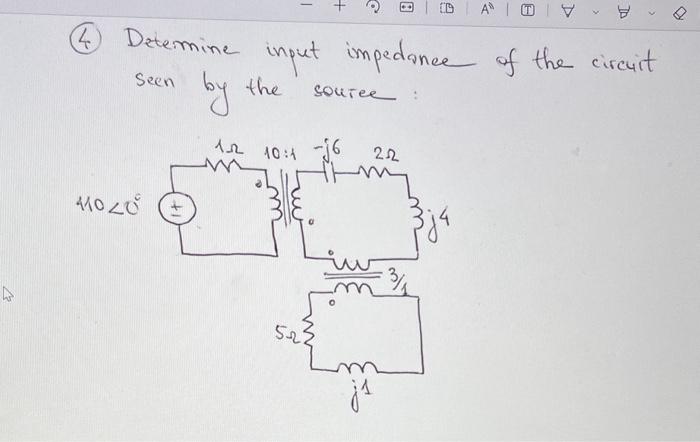 ④ Determine input impedance of the circuit
seen by the source :
1Ω 10:1 -j6 2Ω
110∠0°
j4
3/1
5Ω
j1